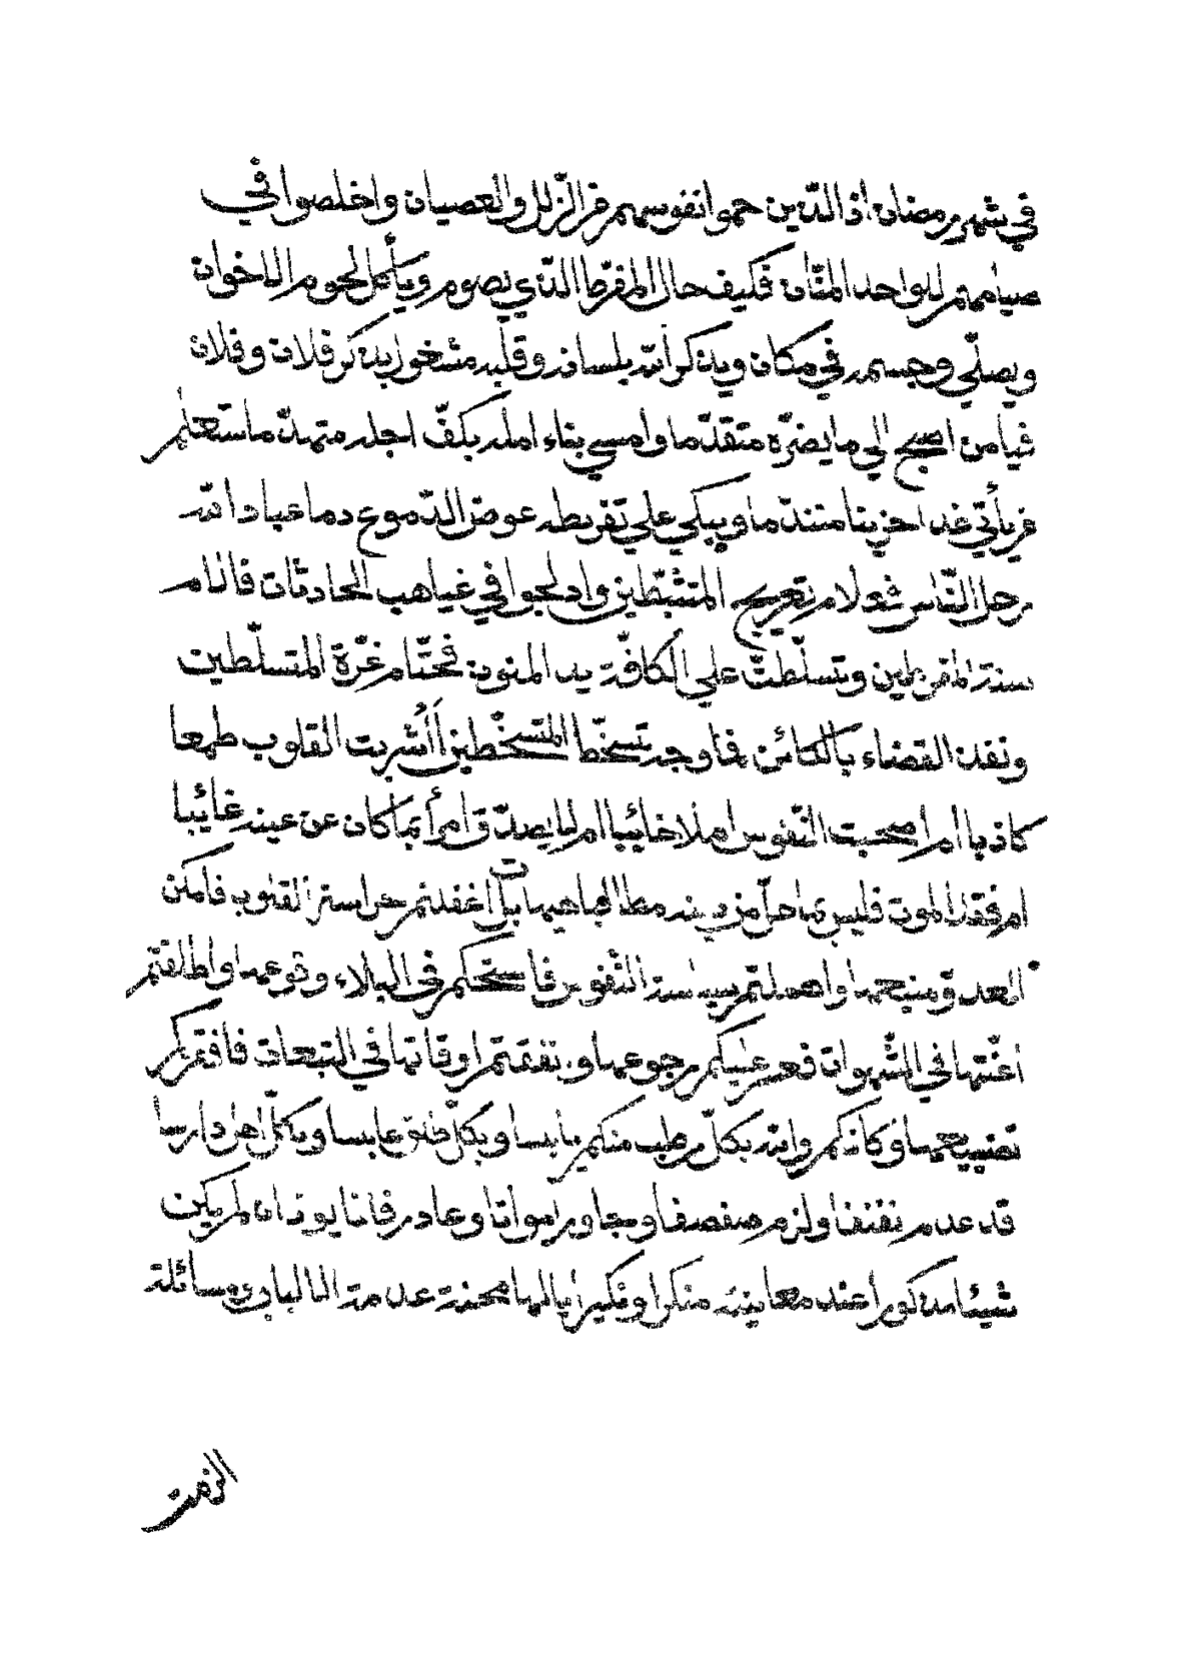 في شهر رمضان اذ الذين حموا نفوسهم من الزّلل والعصيان واخلصوا في
صيامهم للواحد المنّان فكيف حال المفرّط الذي يصوم ويأكل لحوم الاخوان
ويصلّي وجسمه في مكان ويذكر الله بلسانه وقلبه مشغول بذكر فلان وفلان
فيا من اصبح الي ما يضرّه متقدّما وامسي بناء امله بكفّ اجله متهدّما ستعلم
من يأتي غدا حزينا متندّما ويبكي علي تفريطه عوض الدّموع دما عباد الله
رحل النّاس فعلام تعريج المتثبّطين وادلجوا في غياهب الحادثات فانام
سنة المقربلين وتسلّطت علي الكافّة يد المنون فحتّام غرّة المتسلّطين
ونفذ القضاء بالكائن فما وجد تسخّط المتسخّطين أأشربت القلوب طمعا
كاذبا ام اصحبت النّفوس املا خائبا ام لا يصدّق امرأ بما كان عن عينه غائبا
ام فقد الموت فليس بما حلّ من دينه مطالبا هيهات بل اغفلتم حراسة القلوب فامكن
العدو منيحها واهملتم سياسة النّفوس فاستحكم في البلاء وقوعها واطلقتم
اعنّتها في الشّهوات فعسر عليكم رجوعها وتفقتم اوقاتها في التبعات فافقركم
تضييعها وكانكم والله بكلّ رطب منكم يابسا وبكلّ طلق عابسا وبكلّ اهل دارسا
قد عدم نفنفا ولزم صفصفا وجاور امواتا وعادر فانا يوذان لم يكن
شيئا مذكورا عند معاينة منكرا ونكيرا يا لها محنة عدمت الا لباب مسائلة